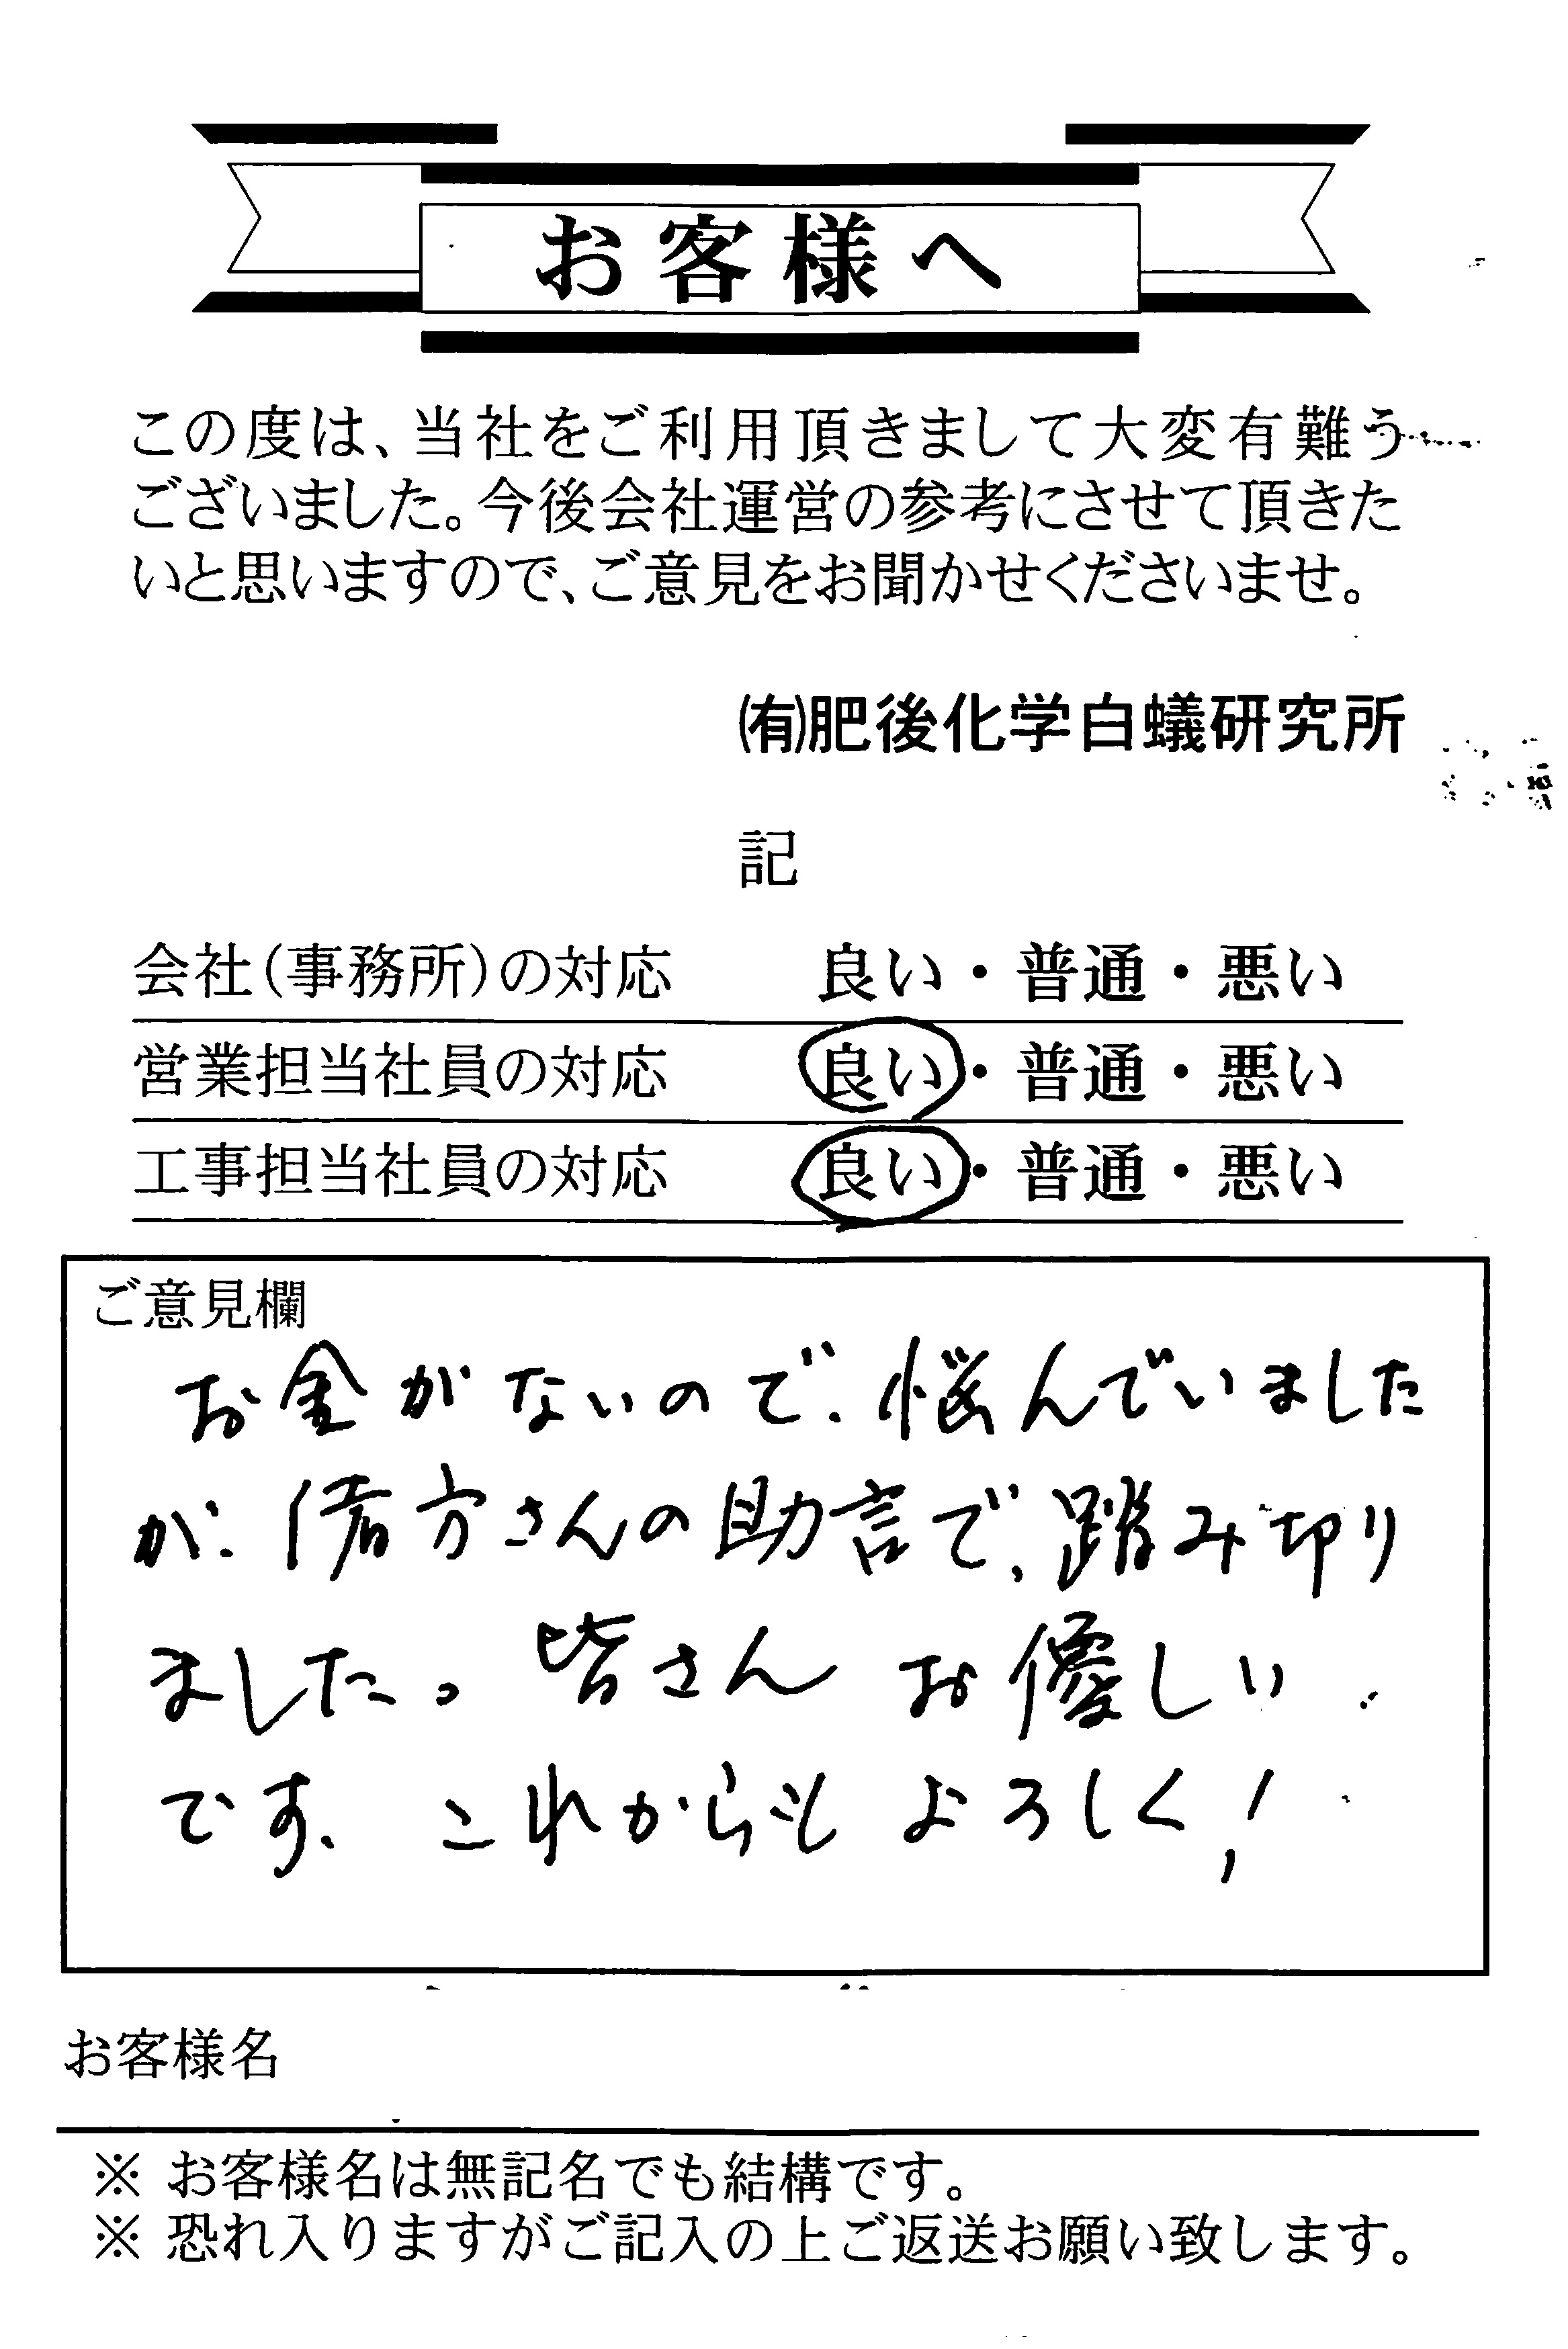 お客様へ
この度は、当社をご利用頂きまして大変有難う
ございました。今後会社運営の参考にさせて頂きた
いと思いますので、ご意見をお聞かせくださいませ。
㈲肥後化学白蟻研究所
記
会社(事務所)の対応 良い・普通・悪い
営業担当社員の対応 良い・普通・悪い
工事担当社員の対応 良い・普通・悪い
ご意見欄
お金がないので、悩んでいました
が、緒方さんの助言で、踏み切り
ました。皆さんお優しい
です、これからもよろしく!
お客様名
※ お客様名は無記名でも結構です。
※ 恐れ入りますがご記入の上ご返送お願い致します。